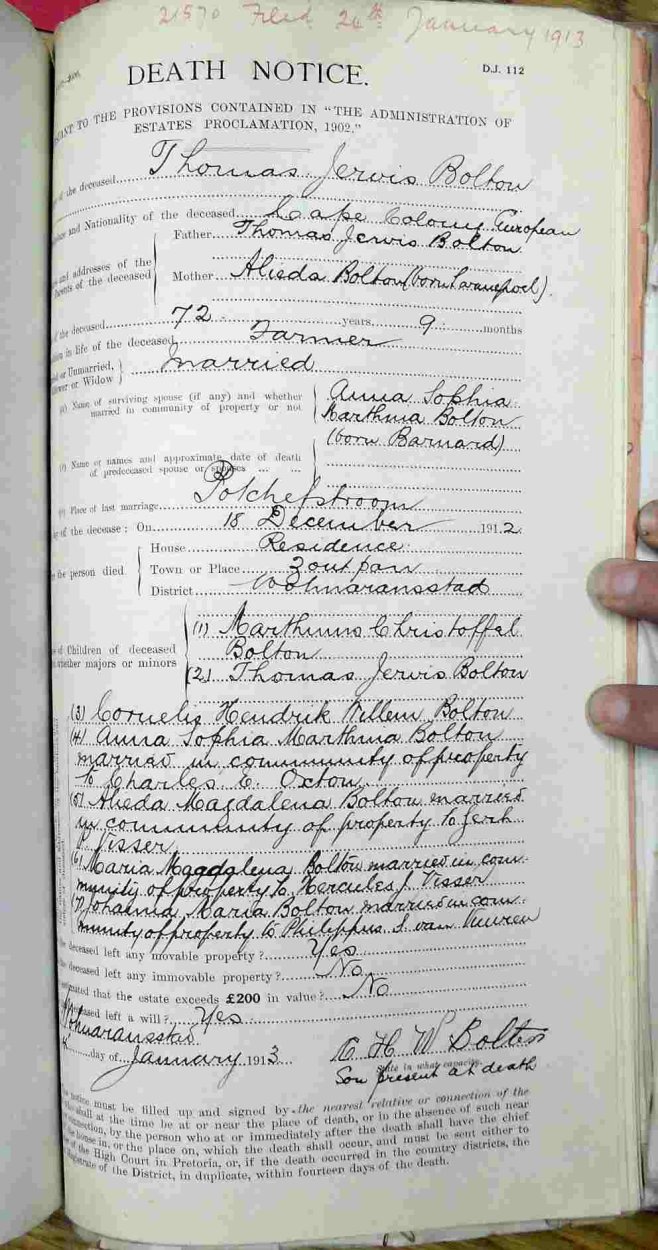 21570 Filed 24th January 1913
DEATH NOTICE.
D.J. 112
TO THE PROVISIONS CONTAINED IN "THE ADMINISTRATION OF
ESTATES PROCLAMATION, 1902."
of the deceased Thomas Jervis Bolton
and Nationality of the deceased Cape Colony European
Father Thomas Jervis Bolton
and addresses of the
Parents of the deceased
Mother Alieda Bolton (born
of the deceased 72 years, 9 months
in life of the deceased Farmer
or Unmarried,
or Widow
Married
Name of surviving spouse (if any) and whether
married in community of property or not
Anna Sophia
Marthina Bolton
(born Barnard)
Name or names and approximate date of death
of predeceased spouse or spouses
Place of last marriage Potchefstroom
of the decease: On 18 December 1912
House Residence
the person died
Town or Place Zoutpan
District Wolmaransstad
of Children of deceased
whether majors or minors
(1) Marthinus Christoffel
Bolton
(2) Thomas Jervis Bolton
(3) Cornelis Hendrik Willem Bolton
(4) Anna Sophia Marthina Bolton
married in community of property
to Charles E. Oxton
(5) Alieda Magdalena Bolton married
in community of property to
Visser
(6) Maria Magdalena Bolton married in com-
munity of property to Hercules J. Visser
(7) Johanna Maria Bolton married in com-
munity of property to Philippus S. van Vuuren
deceased left any movable property? Yes
deceased left any immovable property? No
that the estate exceeds £200 in value? No
deceased left a will? Yes
day of January 1913
C H W Bolton
State in what capacity.
Son present at death
notice must be filled up and signed by the nearest relative or connection of the
shall at the time be at or near the place of death, or in the absence of such near
connection, by the person who at or immediately after the death shall have the chief
house in, or the place on, which the death shall occur, and must be sent either to
of the High Court in Pretoria, or, if the death occurred in the country districts, the
of the District, in duplicate, within fourteen days of the death.